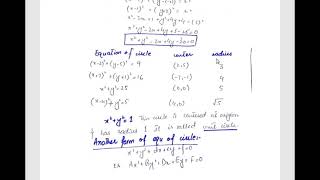 (x-1)² + (y+2)² = 2⁵
x²-2x+1+y²+4y+4 = (5)²
x²+y²-2x+4y+5-25=0
x²+y²-2x+4y-20=0
Equation of circle center radius
(x-2)²+(y-5)²=9 (2,5) 3
(x+7)²+(y+1)²=16 (-7,-1) 4
x²+y²=25 (0,0) 5
(x-4)²+y²=5 (4,0) √5
x²+y²=1 This circle is centered at origin
& has radius 1. It is called unit circle.
Another form of eqn of circle:-
x²+y²+dx+ey+f=0
or Ax²+By²+Dx+Ey+F=0